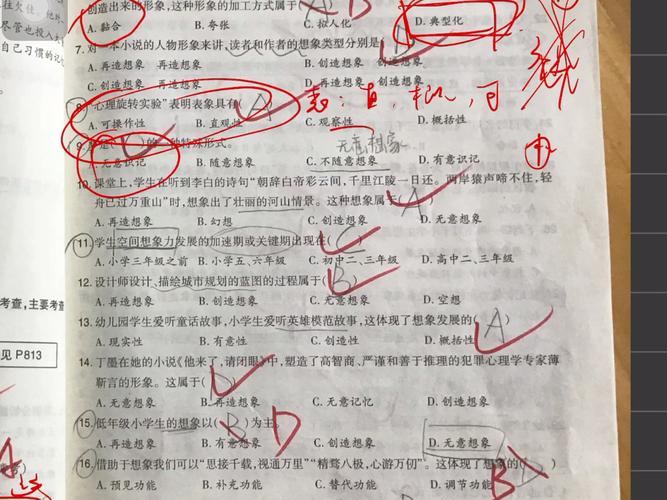 创造出来的形象,这种形象的加工方式属于(
A.黏合 B.夸张 C.拟人化 D.典型化
7.对一本小说的人物形象来讲,读者和作者的想象类型分别是(
A.再造想象 再造想象 B.创造想象 再造想象
C.创造想象 创造想象 D.再造想象 创造想象
8.“心理旋转实验”表明表象具有( A )
A.可操作性 B.直观性 C.观察性 D.概括性
表:直,概,可
9. 的一种特殊形式。
无意想象
A.无意识记 B.随意想象 C.不随意想象 D.有意识记
10.课堂上,学生在听到李白的诗句“朝辞白帝彩云间,千里江陵一日还。两岸猿声啼不住,轻
舟已过万重山”时,想象出了壮丽的河山情景。这种想象属于( A )
A.再造想象 B.幻想 C.创造想象 D.无意想象
11.学生空间想象力发展的加速期或关键期出现在( )
A.小学三年级之前 B.小学五、六年级 C.初中二、三年级 D.高中二、三年级
12.设计师设计、描绘城市规划的蓝图的过程属于( B )
A.再造想象 B.创造想象 C.无意想象 D.空想
13.幼儿园学生爱听童话故事,小学生爱听英雄模范故事,这体现了想象发展的( A )
A.现实性 B.有意性 C.创造性 D.概括性
14.丁墨在她的小说《他来了,请闭眼》中,塑造了高智商、严谨和善于推理的犯罪心理学专家薄
靳言的形象。这属于( )
A.无意想象 B.再造想象 C.无意记忆 D.创造想象
15.低年级小学生的想象以( B )为主。 D
A.再造想象 B.有意想象 C.创造想象 D.无意想象
16.借助于想象我们可以“思接千载,视通万里”“精骛八极,心游万仞”。这体现了想象的( D ) B
A.预见功能 B.补充功能 C.替代功能 D.调节功能
尽管也投入
自己习惯的记
考查,主要考查
见 P813